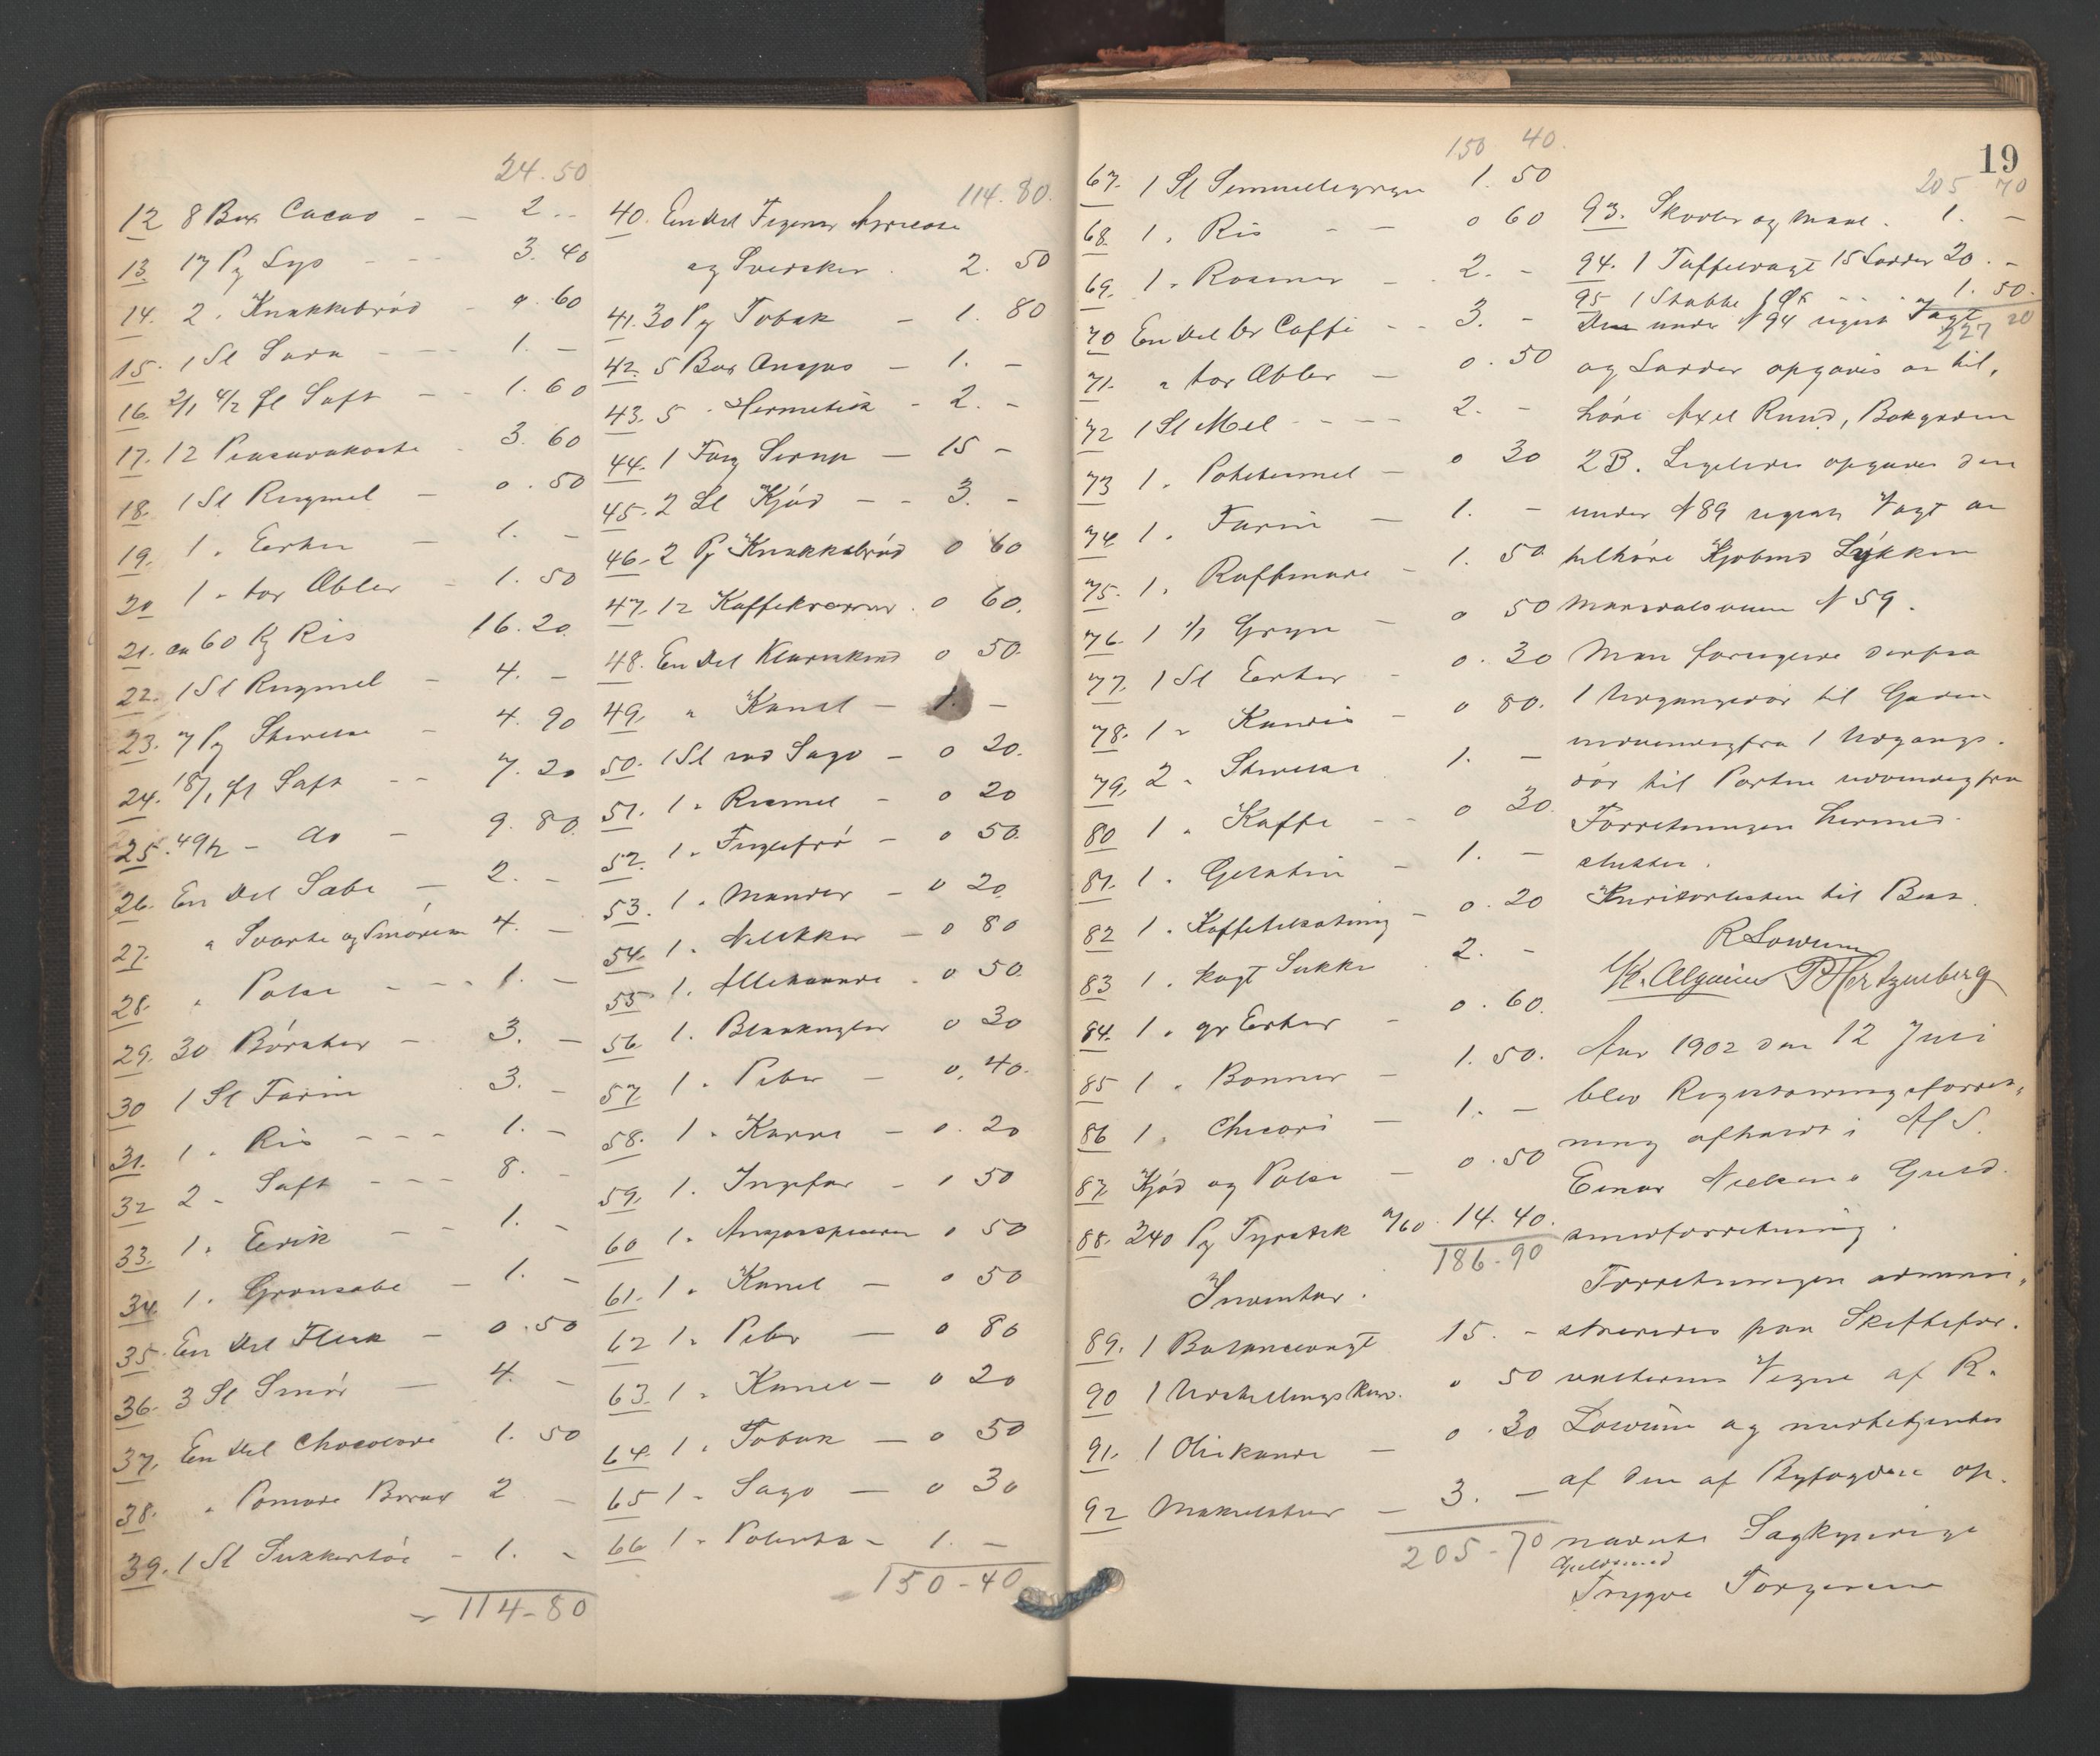 24.50
12 8 Box Cacao - - 2 - -
13. 17 Pg Lys - - - 3. 40
14. 2 " Knækkebrød - 0. 60
15. 1 Sl Soda - - - 1. -
16. 2/1 4/2 fl Saft - - 1. 60
17. 12 Piasavakoste - 3. 60
18. 1 Sl Rugmel - 0. 50
19. 1 " Erter - 1. -
20 1 " tør Æbler - 1. 50
21. ca 60 kg Ris 16. 20
22. 1 Sl Rugmel - 4. -
23. 7 Pg Stivelse - 4. 90
24. 18/1 fl Saft - - 7. 20
25. 49/2 - do - 9. 80
26. En Del Sæbe - 2. -
27. " Sværte og Smørelse 4. -
28. " Pølse - - - 1. -
29. 30 Børster - 3. -
30 1 Sl Farin 3. -
31. 1 " Ris - - - 1. -
32 2 - Saft - - - 8. -
33. 1 " Edik - - 1. -
34. 1 " Grønsæbe - 1. -
35. En Del Flesk - 0. 50
36. 3 Sl Smør - 4. -
37. En Del Chocolade 1. 50
38. " Pomade Borax 2 -
39. 1 Sl Sukkertøi - 1. -
114-80
114.80.
40. En Del Figener Aprikose
og Svedsker . 2. 50
41. 30 Pg Tobak - 1. 80
42. 5 Box Ansjos - 1. -
43. 5 " Hermetisk - 2. -
44. 1 Fustg Sirup - 15 -
45. 2 Sl Kjød - - 3. -
46. 2 Pg Knækkebrød 0 60
47. 12 Kaffekværner . 0 60.
48. En Del Klarskind 0 50.
49. " Kanel - 1. -
50. 1 Sl rød Sago - 0 20.
51. 1 " Rismel - 0 20
52. 1 " Fuglefrø - 0 50.
53. 1 " Mandler - 0 20
54. 1 " Nellikker - 0 80
55. 1 " Allehaande . 0 50.
56 1 " Blaakugler 0 30
57. 1 " Peber - 0. 40.
58. 1 " Karve - 0. 20
59. 1 " Ingefær - 0 50
60 1 " Ansjosspiceri 0 50
61. 1 " Kanel - 0 50
62 1 " Peber - 0 80
63. 1 " Kanel - 0 20
64. 1 " Tobak - 0 50
65 1 " Sago - 0 30
66 1 " Polenta - 1. -
150-40
19
150 40.
67. 1 Sl Semmelegryn 1. 50
68. 1 " Ris - - 0 60
69. 1 " Rosiner - 2. -
70 En Del br Caffe - - 3. -
71. " tør Æbler - 0. 50
72 1 Sl Mel - - - - 2. -
73 1 " Potetesmel - 0 30
74. 1 " Farin - 1. -
75. 1 " Raffinade - 1. 50
76. 1 1/1 Gryn - 0 50
77. 1 Sl Erter - 0. 30
78. 1 " Kandis - 0 80.
79. 2 " Stivelse 1. -
80 1 " Kaffe - - 0 30.
81. 1 " Gelatin - 1. -
82 1 " Kaffetilsætning - 0. 20
83 1 " hugt Sukker . 2. -
84. 1 " gr Erter - 0. 60.
85 1 " Bønner - 1. 50.
86 1 " Chicori - 1. -
87. Kjød og Pølse - 0. 50
88. 240 Pg Fyrstik a/60 . 14. 40.
186-90
Inventar.
89. 1 Balancevægt 15. -
90 1 Udstillingskas. 0 50
91. 1 Oliekande - 0. 30
92 Makulatur - 3. -
205-70
205 70
93. Skovler og Maal. 1. -
94. 1 Taffelvægt 15 Lodder 20. -
95 1 Stabbe 1 Øx - - - 1. 50.
227 20
Den under N 94 regist Vægt
og Lodder opgaves at til-
høre Axel Ruud, Bakgaden
2B. Ligeledes opgaves den
under N 89 registr Vægt at
tilhøre Kjøbmd Lykken
Maridalsveien N 59.
Man forseglede derpaa
1 Udgangsdør til Gaden
indvendigfra 1 Udgangs-
dør til Porten udvendigfra
Forretningen hermed
sluttet.
Kreditorlisten til Best.
R Lowum
P Hertzenberg
Aar 1902 den 12 Juli
blev Registreringsforret-
ning afholdt i A/S
Einar Nielsens Guld-
smedforretning.
Forretningen admini-
streredes paa Skiftefor-
valterens Vegne af R.
Lowum og medbetjentes
af den af Byfogden op-
nævnte Sagkyndige
Guldsmed
Trygve Torgersen